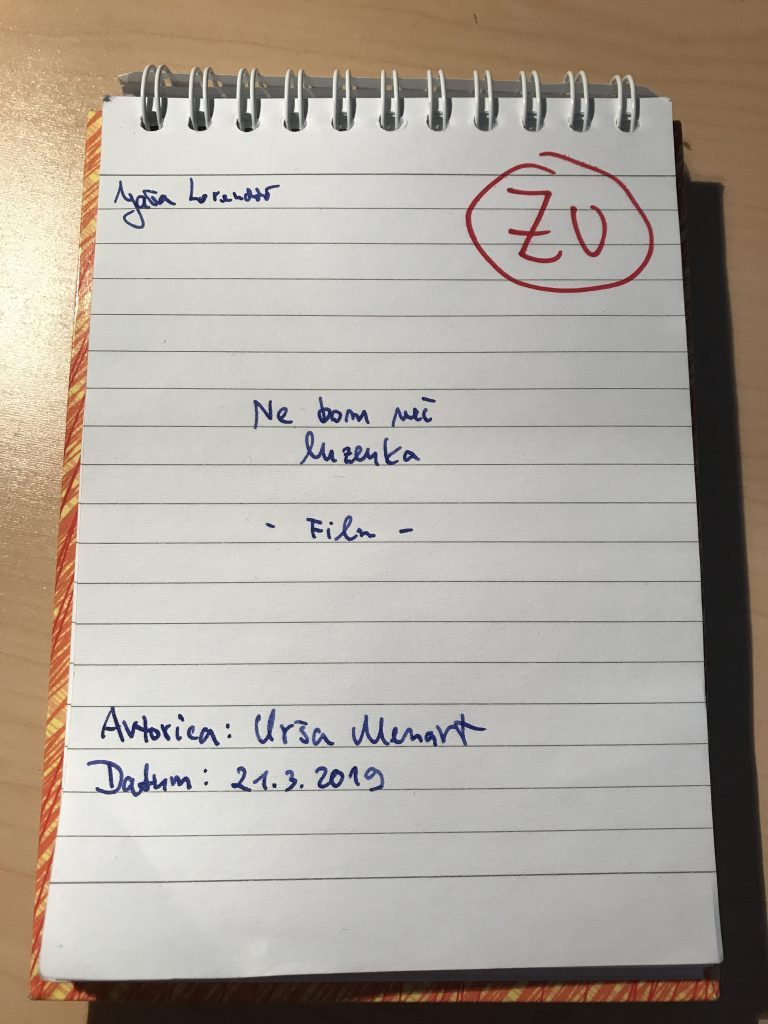 ZU
Ne bom več
luzerka
- Film -
Avtorica: Urša Menart
Datum: 21.3.2019